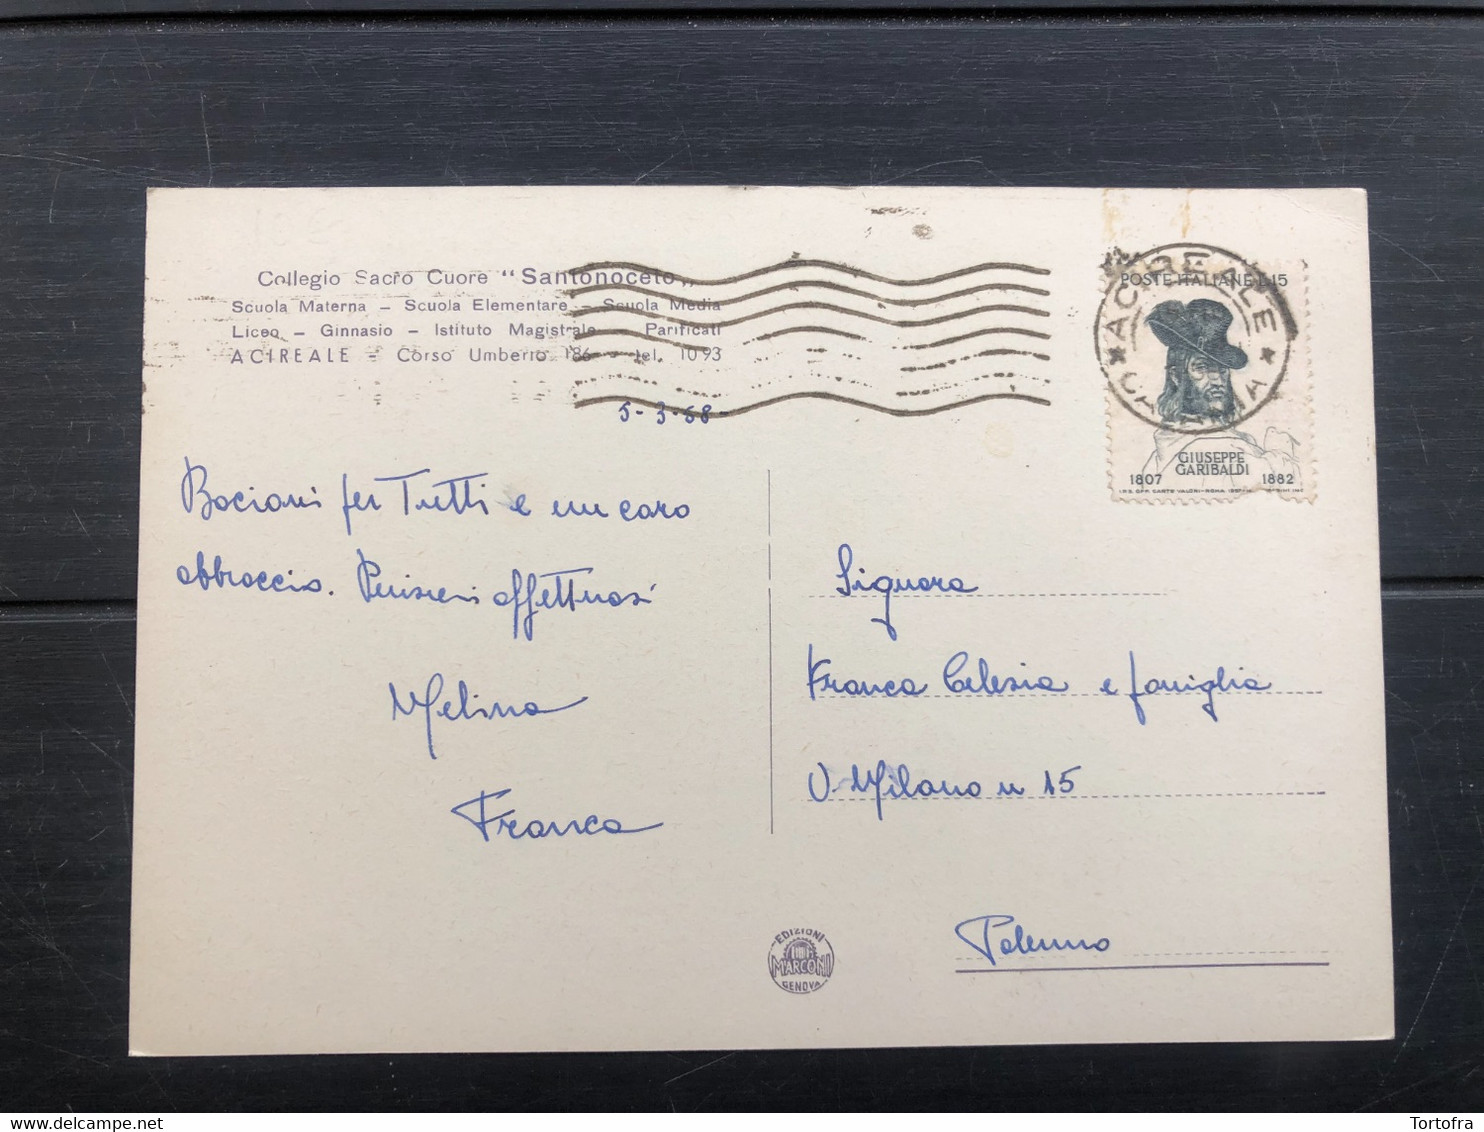 Collegio Sacro Cuore "Santonoceto,,
Scuola Materna – Scuola Elementare – Scuola Media
Liceo – Ginnasio – Istituto Magistrale – Parificati
ACIREALE – Corso Umberto 186 – tel. 10 93
5-3-68-
Bacioni per Tutti e un caro
abbraccio. Pensieri affettuosi
Melina
Franca
POSTE ITALIANE L.15
ACIREALE
CATANIA
GIUSEPPE
GARIBALDI
1807 1882
I.P.S. OFF. CARTE VALORI-ROMA
Signora
Franca Celesia e famiglia
V. Milano n 15
Palermo
EDIZIONI
MARCONI
GENOVA
Tortofra